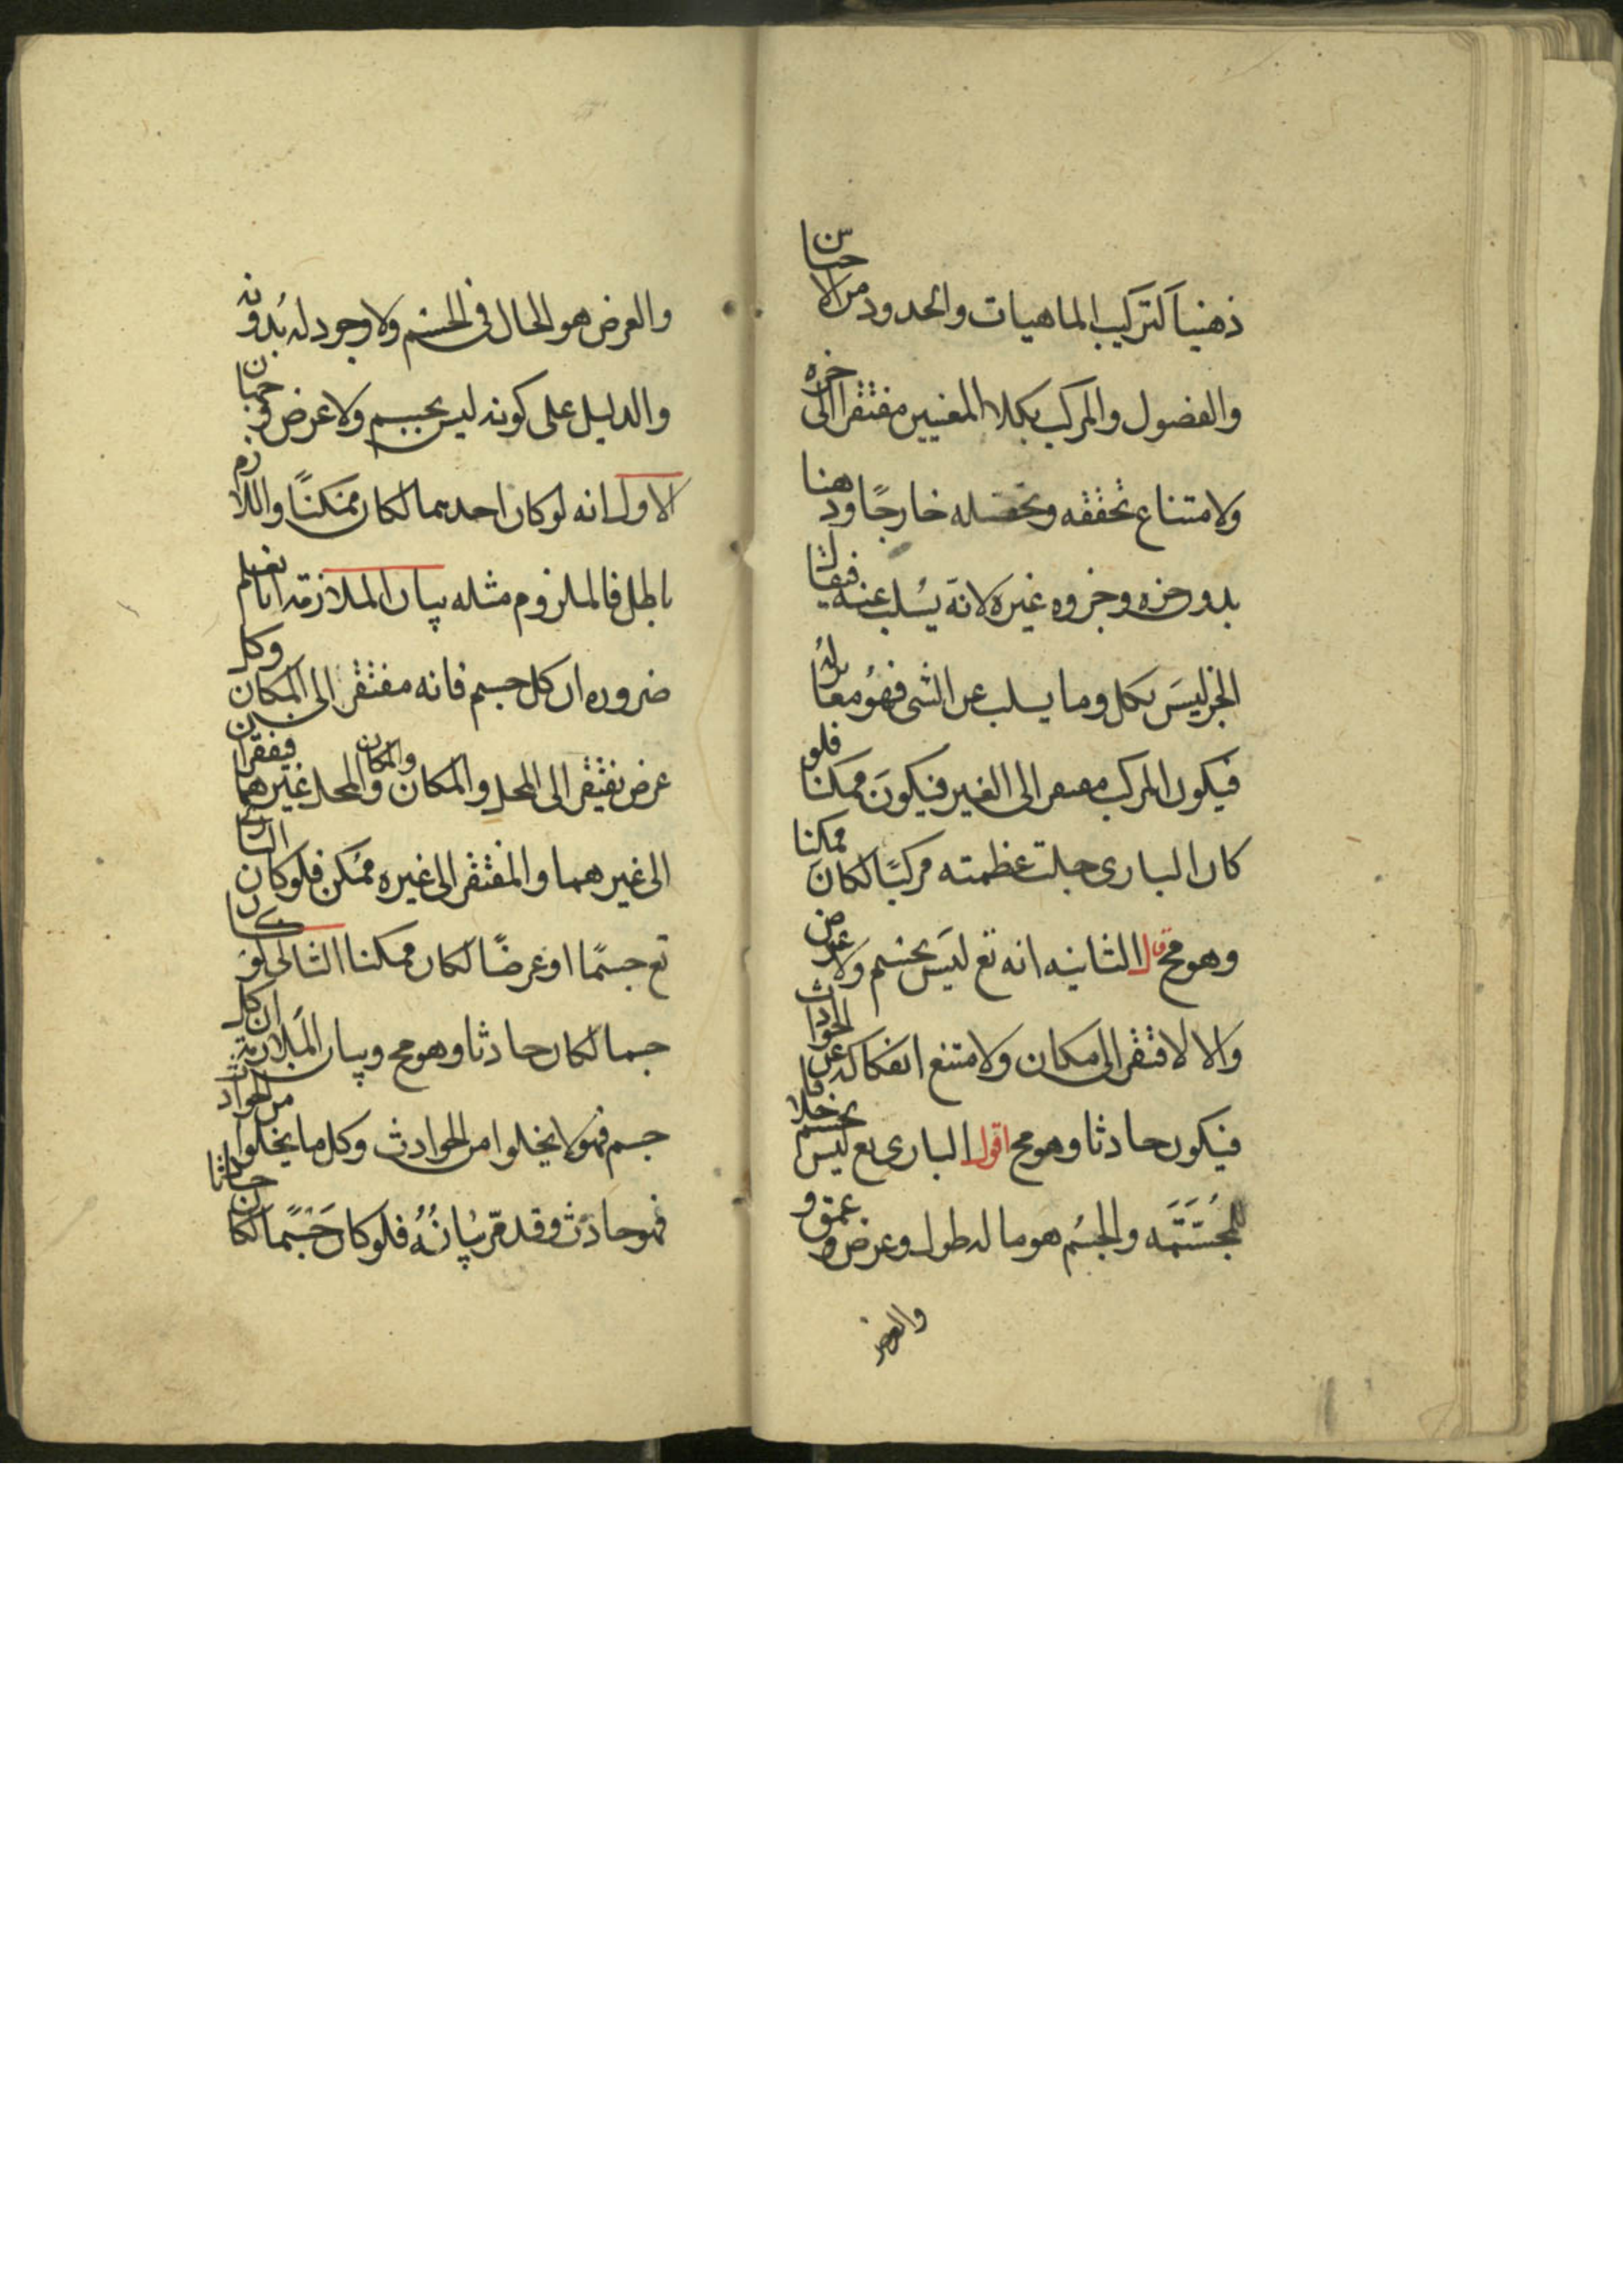 ذهنيا كتركيب الماهيات والحدود من الاجناس
والفصول والمركب بكلا المعنيين مفتقر الى جزه
ولامتناع تحققه وتحصله خارجًا وذهنا
بدون جزه وجزوه غيره لانه يسلب عنه فيقال
الجز ليس بكل وما يسلب عن الشى فهو مغاير له
فيكون المركب مفتقر الى الغير فيكون ممكنا فلو
كان البارى جلت عظمته مركبًا لكان ممكنا
وهو مح قال الثانيه انه تع ليس بجسم ولا عرض
والا لافتقر الى مكان ولامتنع انفكاكه عن الحوادث
فيكون حادثا وهو مح اقول البارى تع ليس بجسم خلافا
للمجسمه والجسم هو ما له طول وعرض و عمق و
والعرض
والعرض هو الحال فى الجسم ولا وجود له بدونه
والدليل على كونه ليس بجسم ولا عرض وجهان
الاول انه لو كان احدهما لكان ممكنًا واللازم
باطل فالملزوم مثله بيان الملازمة انا نعلم
ضروره ان كل جسم فانه مفتقر الى المكان وكل
عرض يفتقر الى المحل والمكان والمحل غيرهما فيفتقران
والمكان
الى غيرهما والمفتقر الى غيره ممكن فلو كان البارى
تع جسمًا او عرضًا لكان ممكنا الثانى لو كان
جسما لكان حادثا وهو مح وبيان الملازمة ان كل
جسم فهو لا يخلوا من الحوادث وكل ما يخلوا من الحوادث
فهو حادث وقد مر بيانه فلو كان جسمًا لكان حادثا